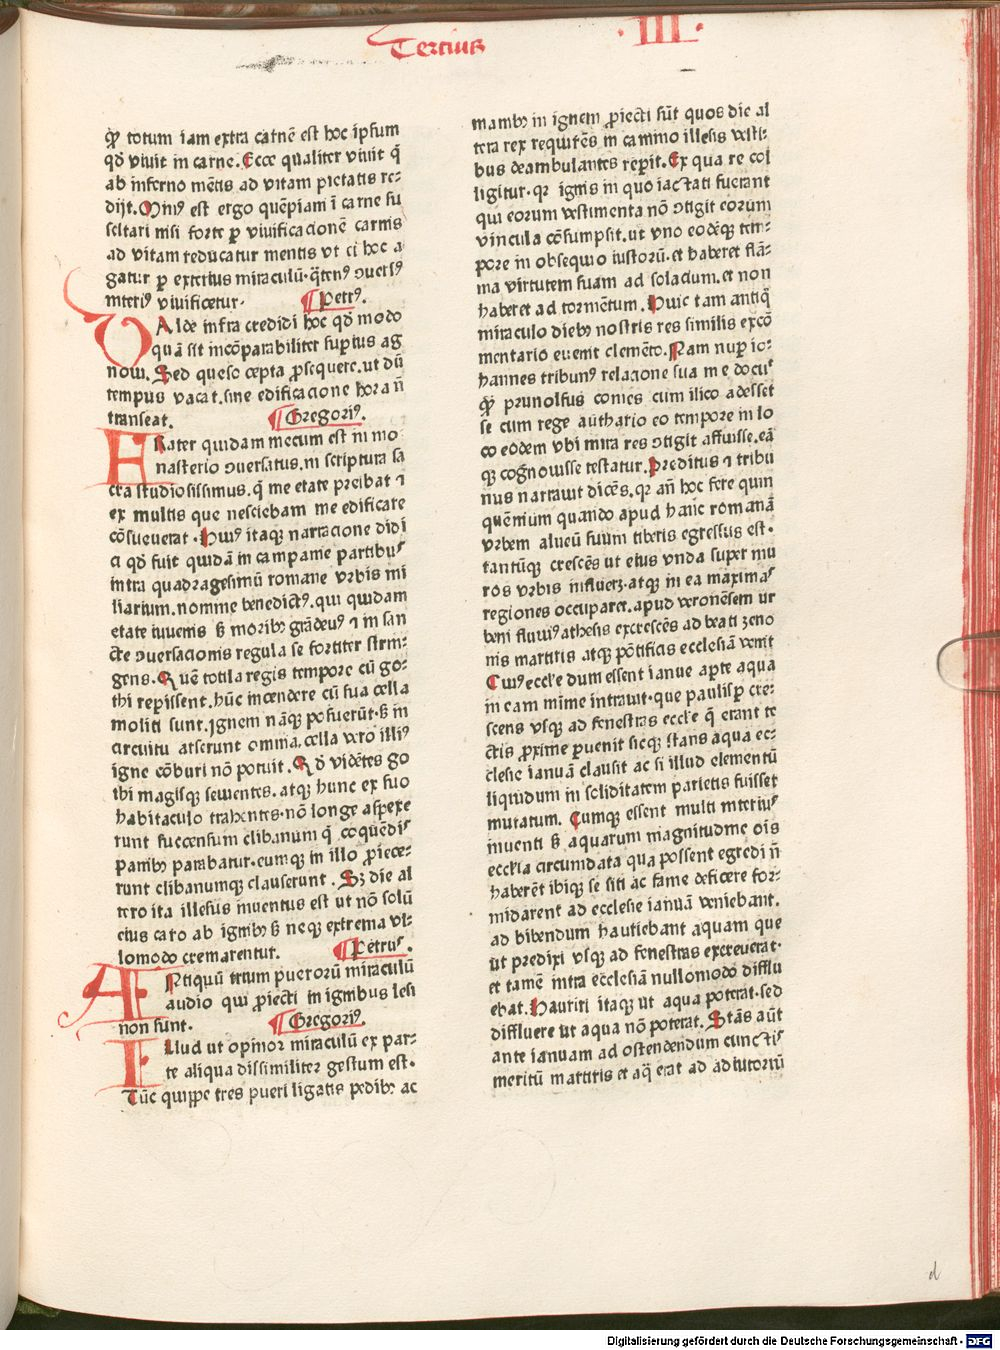 Tercius
· III ·
qꝫ totum iam extra carnē est hoc ipsum
qd̄ viuit in carne. Ecce qualiter viuit q̄
ab inferno mētis ad vitam pietatis re⸗
dijt. Minꝰ est ergo quēpiam ī carne su
scitari nisi forte ꝑ viuificacionē carnis
ad vitam reducatur mentis vt ei hoc a⸗
gatur ꝑ exteriꝰ miraculū. q̄tenꝰ ↄuersꝰ
interiꝰ viuificetur.
¶ Petrꝰ.
VAlde infra credidi hoc qd̄ modo
quā sit incōparabiliter supius ag
noui. Sed queso cepta ꝓsequere. ut dū
tempus vacat. sine edificacione hora n̄
transeat.
¶ Gregoriꝰ.
FRater quidam mecum est in mo
nasterio ↄuersatus. in scriptura sa
cra studiosissimus. q̄ me etate preibat ⁊
ex multis que nesciebam me edificare
cōsueuerat. Huiꝰ itaqꝫ narracione didi
ci qd̄ fuit quidā in campanie partibuˢ
intra quadragesimū romane vrbis mi
liarium. nomine benedictꝰ. qui quidam
etate iuuenis sꝫ moribꝫ grādeuꝰ ⁊ in san
cte ↄuersacionis regula se fortiter strin⸗
gens. Quē totila regis tempore cū go⸗
thi reperissent. hūc incendere cū sua cella
moliti sunt. Ignem nāqꝫ posuerūt. sꝫ in
circuitu arserunt omnia. cella vero illiꝰ
igne cōburi nō potuit. Qd̄ vidētes go
thi magisqꝫ seuientes. atqꝫ hunc ex suo
habitaculo trahentes. nō longe aspexe
runt succensum clibanum q̄ coquēdiˢ
panibꝫ parabatur. eumqꝫ in illo ꝓiece⸗
runt clibanumqꝫ clauserunt. Sꝫ die al
tero ita illesus inuentus est ut nō solū
eius caro ab ignibꝫ sꝫ neqꝫ extrema vl⸗
lomodo cremarentur.
¶ Petruˢ.
ANtiquū trium puerorū miraculū
audio qui ꝓiecti in ignibus lesi
non sunt.
¶ Gregoriꝰ.
Illud ut opinor miraculū ex par⸗
te aliqua dissimiliter gestum est.
Tūc quippe tres pueri ligatis pedibꝫ ac
manibꝫ in ignem ꝓiecti sūt quos die al
tera rex requirēs in camino illesis vesti⸗
bus deambulantes reperit. Ex qua re col
ligitur. qꝛ ignis in quo iactati fuerant
qui eorum vestimenta nō ↄtigit eorum
vincula cōsumpsit. ut vno eodēqꝫ tem⸗
pore in obsequio iustorū. et haberet flā⸗
ma virtutem suam ad solacium. et non
haberet ad tormētum. Huic tam antiq̄
miraculo diebꝫ nostris res similis excō
mentario euenit clemēto. Nam nuper io⸗
hannes tribunꝰ relacione sua me docuᵗ
qꝫ prunolfus comes cum ilico adesset
se cum rege authario eo tempore in lo
co eodem vbi mira res ↄtigit affuisse. eā
qꝫ cognouisse testatur. Preditus ⁊ tribu
nus narrauit dicēs. qꝛ an̄ hoc fere quin
quēnium quando apud hanc romanā
vrbem alueū suum tiberis egressus est.
tantūqꝫ crescēs ut eius vnda super mu
ros vrbis influerꝫ. atqꝫ in ea maximaˢ
regiones occuparet. apud veronēsem ur
beni fluuiꝰ athesis excrescēs ad beati zeno
nis martiris atqꝫ pōtificis ecclesiā venit
Cuiꝰ eccl̄e dum essent ianue apte aqua
in eam mīme intrauit. que paulisꝑ cre⸗
scens vsqꝫ ad fenestras eccl̄e q̄ erant te
ctis ꝓxime ꝑuenit sicqꝫ stans aqua ec⸗
clesie ianuā clausit ac si illud elementū
liquidum in soliditatem parietis fuisset
mutatum. Cumqꝫ essent multi interiuˢ
inuenti sꝫ aquarum magnitudine oīs
eccl̄ia circumdata qua possent egredi n̄
haberēt ibiqꝫ se siti ac fame deficere for⸗
midarent ad ecclesie ianuā veniebant.
ad bibendum hauriebant aquam que
ut predixi vsqꝫ ad fenestras excreuerat.
et tamē intra ecclesiā nullomodo difflu
ebat. Hauriri itaqꝫ ut aqua poterat. sed
diffluere ut aqua nō poterat. Stās aūt
ante ianuam ad ostendendum cunctiˢ
meritū martiris et aq̄ erat ad adiutoriū
d
Digitalisierung gefördert durch die Deutsche Forschungsgemeinschaft - DFG